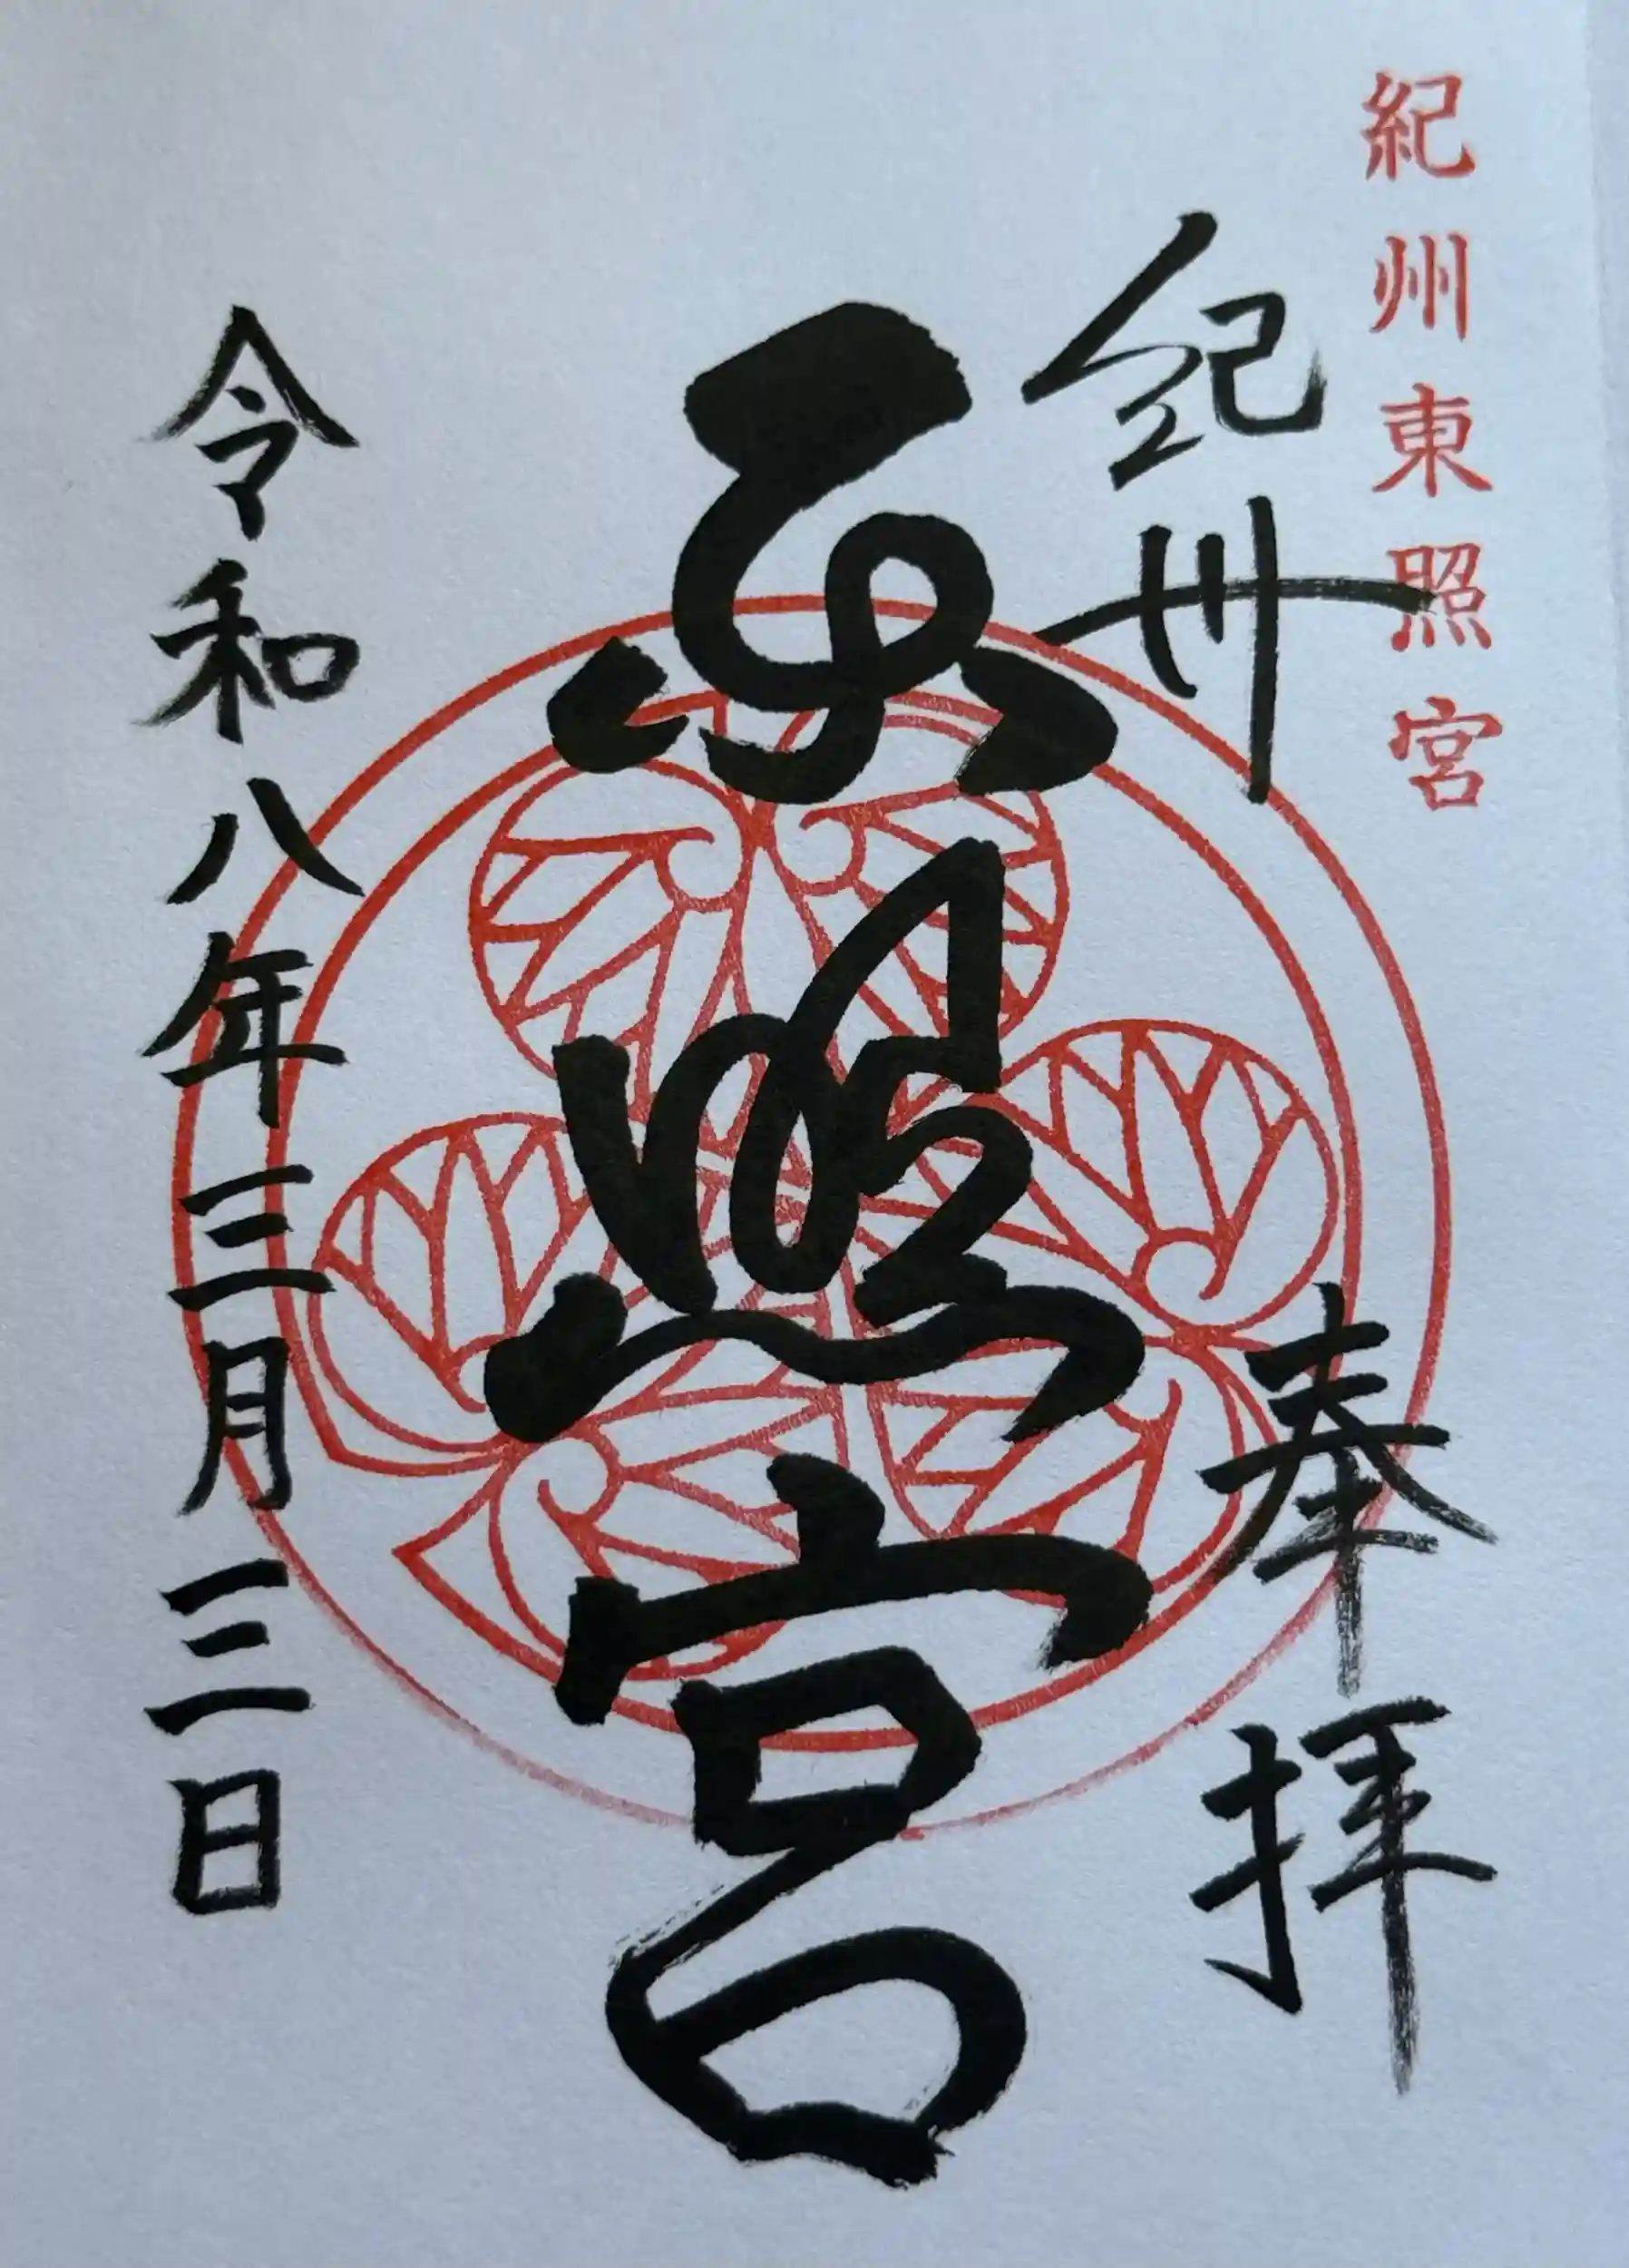 紀州東照宮
紀州
奉拝
東照宮
令和八年三月三日